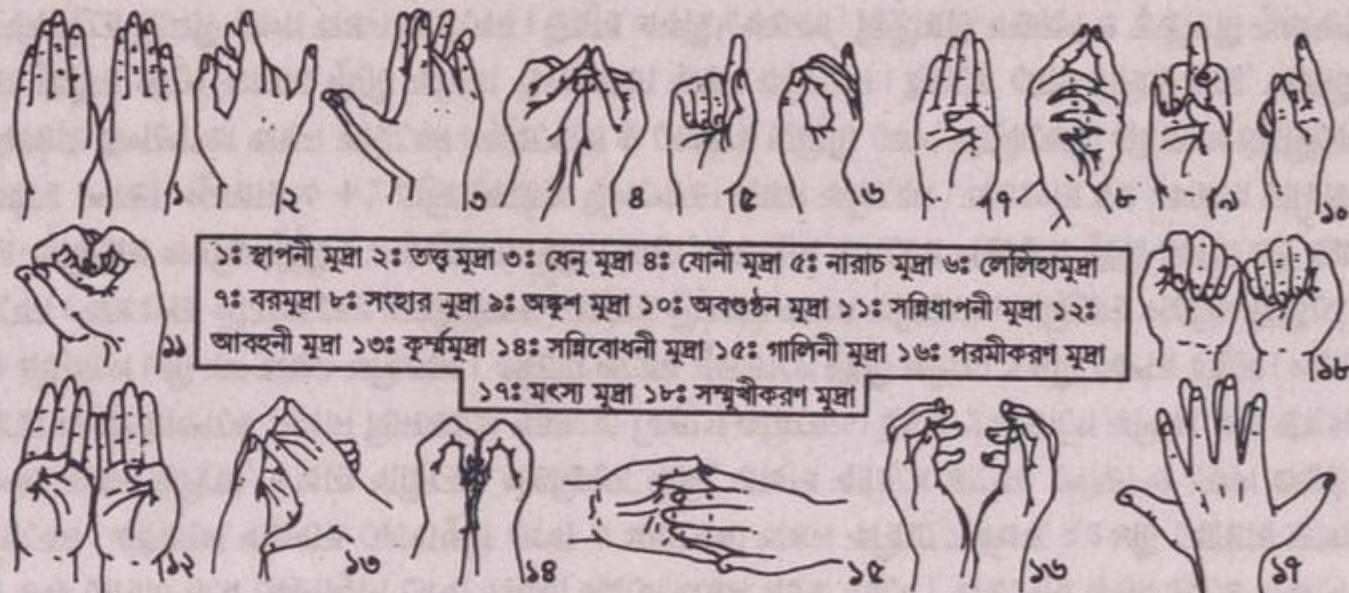 ১ ২ ৩ ৪ ৫ ৬ ৭ ৮ ৯ ১০
১ঃ স্থাপনী মুদ্রা ২ঃ তত্ত্ব মুদ্রা ৩ঃ ধেনু মুদ্রা ৪ঃ যোনী মুদ্রা ৫ঃ নারাচ মুদ্রা ৬ঃ লেলিহামুদ্রা
৭ঃ বরমুদ্রা ৮ঃ সংহার মুদ্রা ৯ঃ অঙ্কুশ মুদ্রা ১০ঃ অবগুণ্ঠন মুদ্রা ১১ঃ সন্নিধাপনী মুদ্রা ১২ঃ
আবহনী মুদ্রা ১৩ঃ কূর্ম্মমুদ্রা ১৪ঃ সন্নিবোধনী মুদ্রা ১৫ঃ গালিনী মুদ্রা ১৬ঃ পরমীকরণ মুদ্রা
১৭ঃ মৎস্য মুদ্রা ১৮ঃ সম্মুখীকরণ মুদ্রা
১১ ১৮
১২ ১৩ ১৪ ১৫ ১৬ ১৭